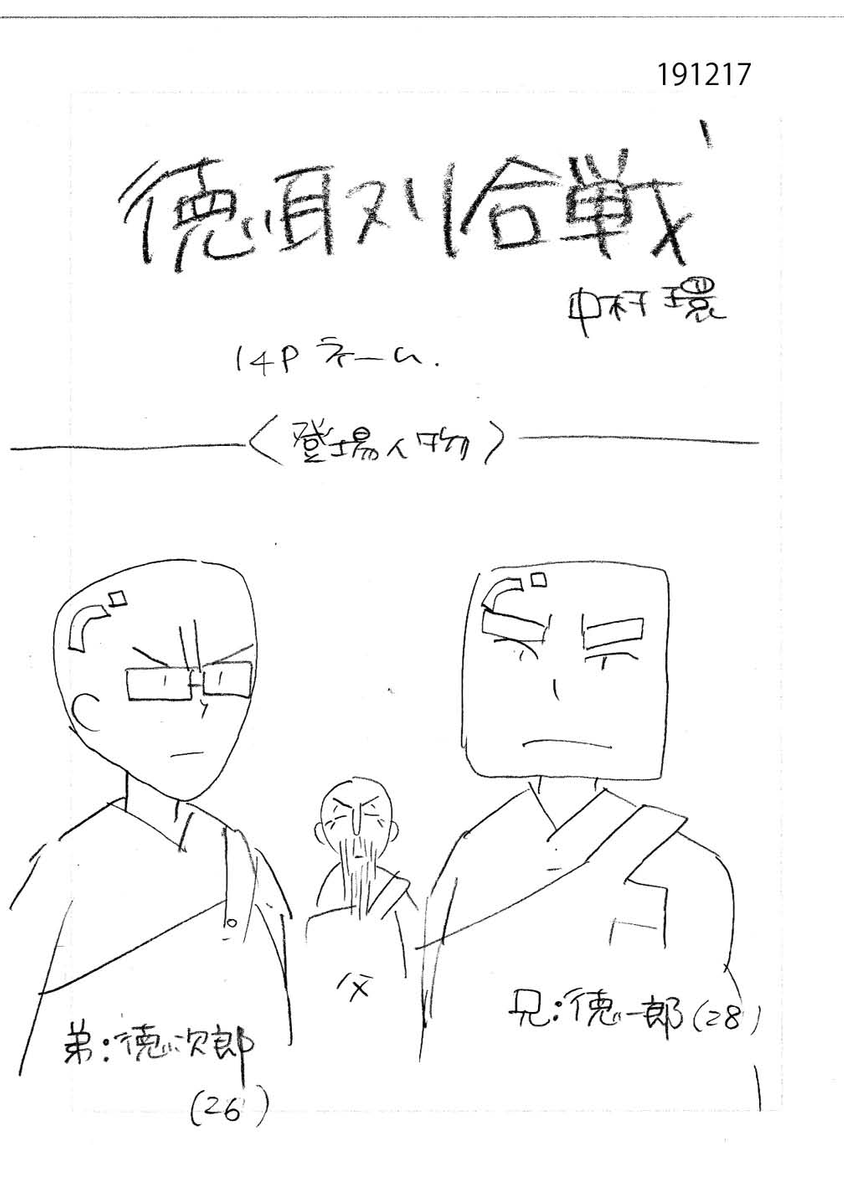 191217
徳取リ合戦
中村環
14P ネーム.
〈登場人物〉
父
兄:徳一郎(28)
弟:徳次郎
(26)